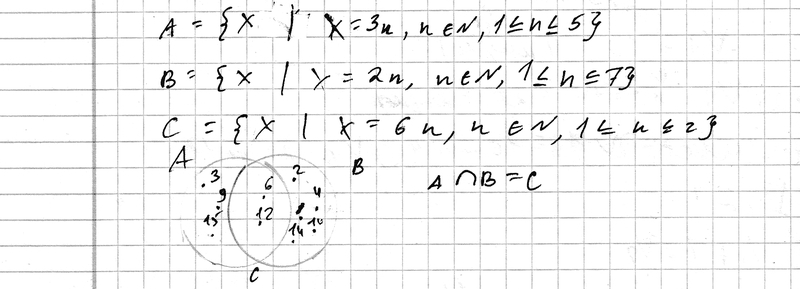 A = {X | X = 3n, n ∈ N, 1 ≤ n ≤ 5}
B = {X | X = 2n, n ∈ N, 1 ≤ n ≤ 7}
C = {X | X = 6n, n ∈ N, 1 ≤ n ≤ 2}
A B
3 6 2
9 4
15 12 8 10
14
A ∩ B = C
C